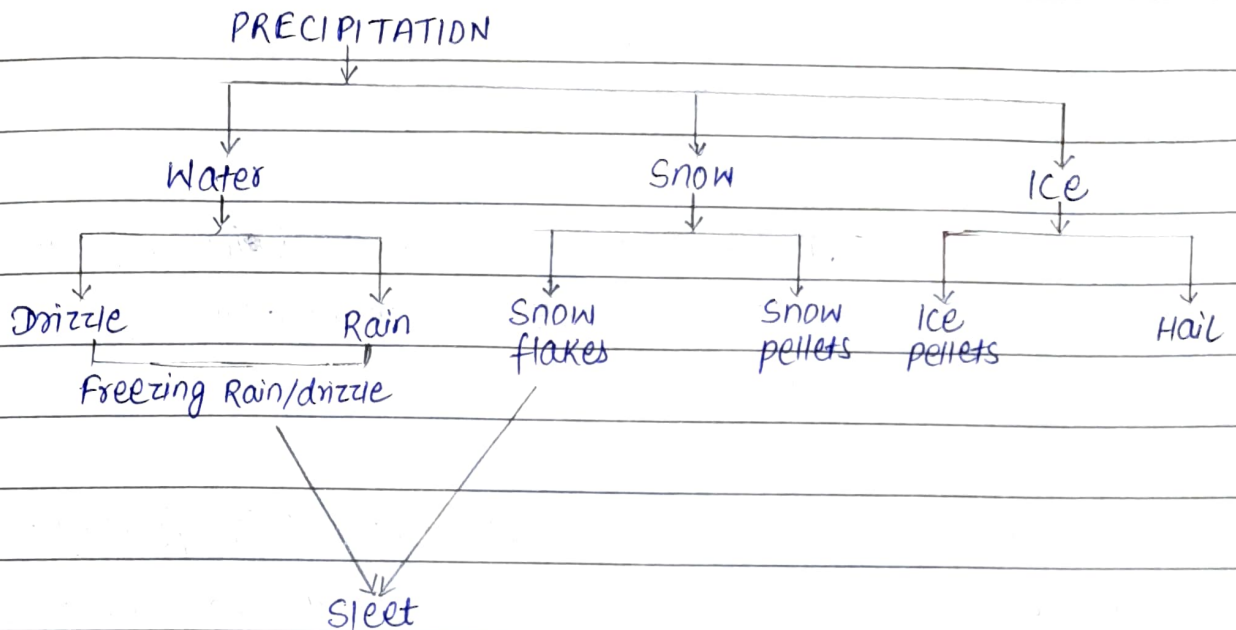 PRECIPITATION
Water Snow Ice
Drizzle Rain Snow flakes Snow pellets Ice pellets Hail
Freezing Rain/drizzle
Sleet